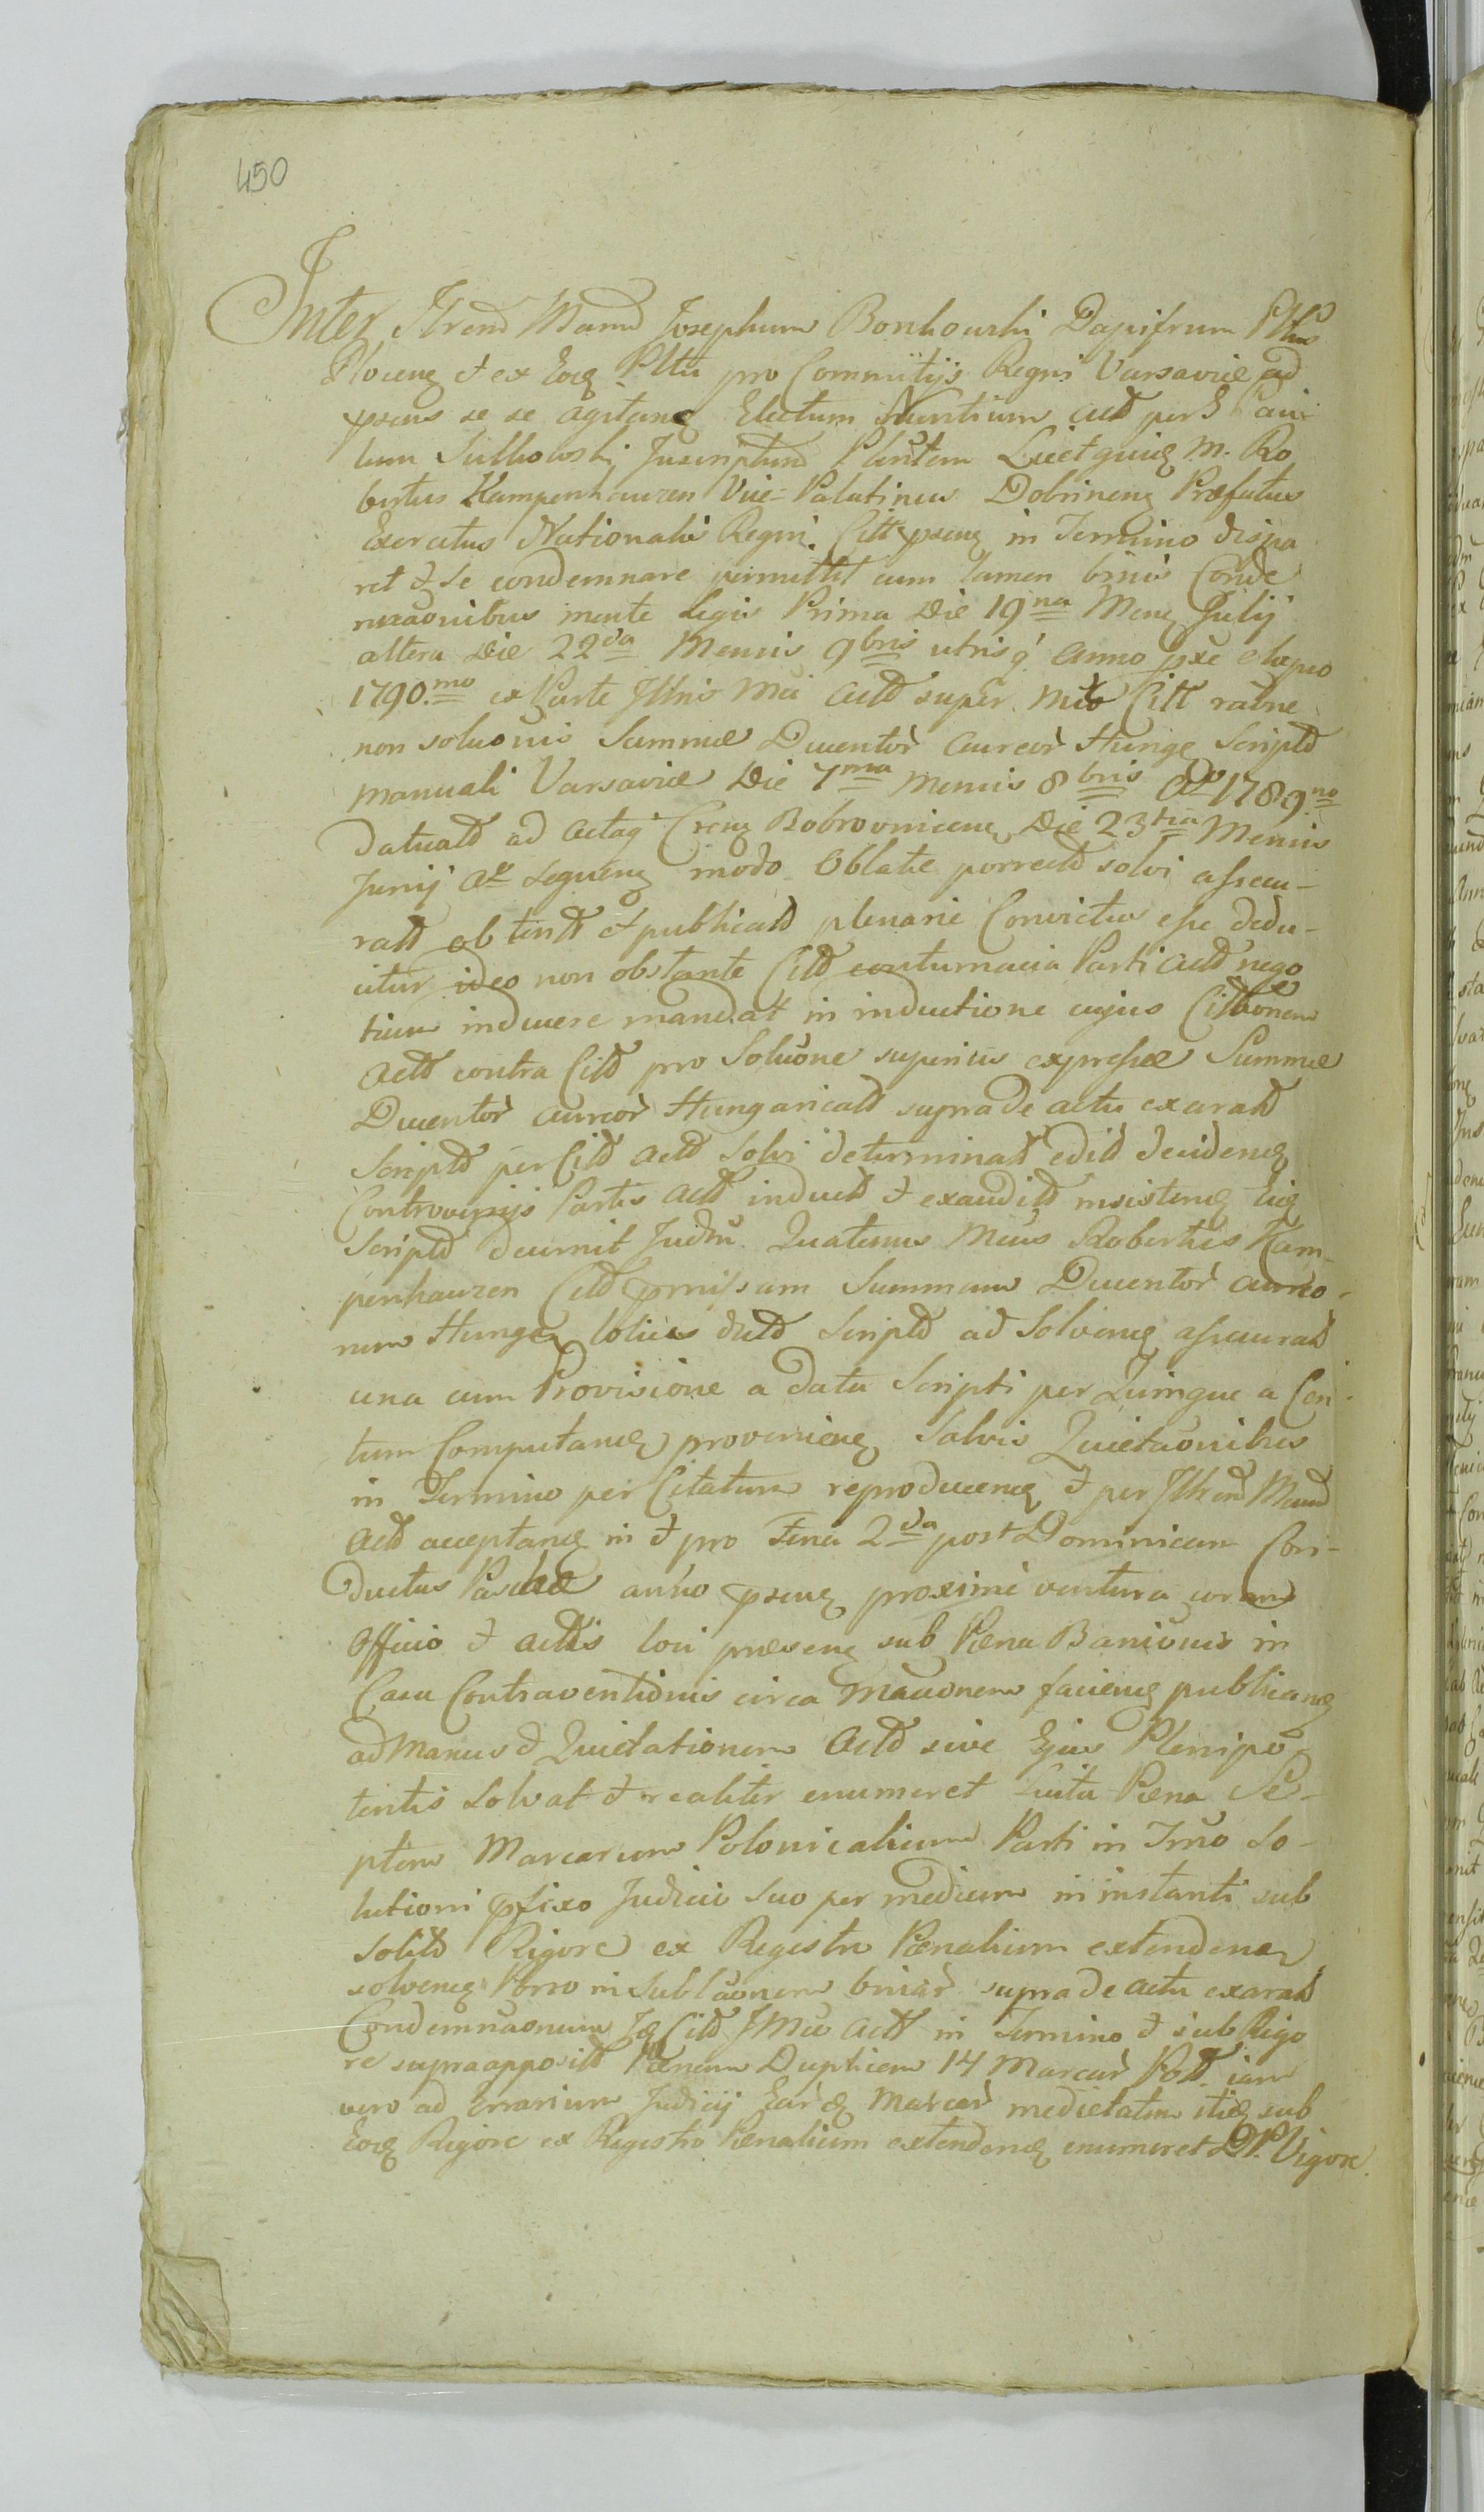 450
Inter Illrend Mamd Josephum Bonkowski Dapifrum Pltus
Plocenq et ex Eoq Pltu pro Commitijs Regni Varsaviæ ad
præns se se agitanq Electum Nuntium actd per G Pau
lum Sulkowski Juscriptund Plentem Licet quiq M. Ro
bertus Kampenhauzen Vice-Palatinus Dobrinenq Præfatus
Exercitus Nationalis Regni Citt prænq in Termino dispa
ret et se condemnare permittit cum tamen binis Conde
mnaonibus mente Legis Prima Die 19na Menq Julij
altera Die 22da Mensis 9bris utrisq Anno pxe elapso
1790.mo ex Parte Illmis Mci Actd super Mco Citt ratne
non soluonis Summæ Ducentor Aureor Hungc Scriptd
Manuali Varsaviæ Die 7ma Mensis 8bris Ao 1789.no
datuatd ad Actaq Crenq Bobrovnicenq Die 23tia Mensis
Junij Ao Sequenq modo Oblatæ porrectd solvi assecu-
ratd obtentd et publicatd plenarie Convictus esse dedu-
citur ideo non obstante Citd contumacia Parti Actd nego
tium inducere mandat in inductione cujus Citationem
Actd contra Citd pro Soluone superius expressæ Summæ
Ducentor aureor Hungaricald supra de actu exaratd
Scriptd per Citd Actd solvi determinatd edid decidenq
Controversijs Partis Actd inductd et exauditd insistenq liq
Scriptd decernit Judm Quatenus Mcus Robertus Kam-
penhauzen Citd præmissam Summam Ducentor aureo-
rum Hungcq toties dictd Scriptd ad Solvenq assecuratd
una cum Provisione a data Scripti per Quinque a Cen-
tum Computandq provenienq Salvis Quietaonibus
in Termino per Citatum reproducenq et per Illrend Mamd
Actd acceptanq in et pro Feria 2da post Dominicam Con-
ductus Paschæ anno prænq proxime ventura coram
Officio et actis loci præsenq sub Pæna Banionis in
Casu Contraventionis circa Maaonem facienq publicanq
ad Manus et Quietationem Actd sive Ejus Plenipo-
tentis Solvat et realiter enumeret Luita Pæna Se-
ptem Marcarum Polonicalium Parti in Tmno So-
lutioni pfixo Judicio Suo per medium in instanti sub
Solitd Rigore ex Registro Pænalium extendenq
solvenq Porro in Sublaonem binar supra de actu exaratd
Condemnaonum Iq Citd IMco Actd in Termino et sub Rigo
re supraapposittd Pænam Duplicem 14 Marcar Poll. iam
vero ad Errarium Judicij Earq Marcar medietatem itiq sub
Eoq Rigore ex Registro Pænalium extendenq enumeret D.P. Vigore